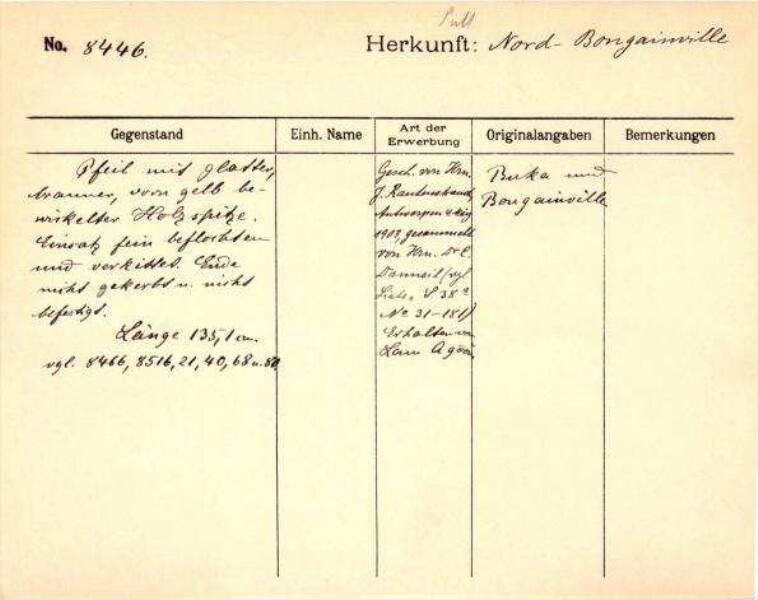 No. 8446.
Herkunft: Nord-Bougainville
Gegenstand
Einh. Name
Art der
Erwerbung
Originalangaben
Bemerkungen
Pfeil mit glatter,
brauner, vorn gelb be-
wickelter Holzspitze.
Einsatz fein beflochten
und verkittet. Ende
nicht gekerbt u. nicht
befestigt.
Länge 135,1 cm.
vgl. 8466, 8516, 21, 40, 68 u. 80
Gesch. von Hrn.
J. Rautenstrauch
Antwerpen
1903, gesammelt
von Hrn. Dr E.
Danneil (vgl
Liste, S 38
No 31-181)
Erhalten
Buka und
Bougainville